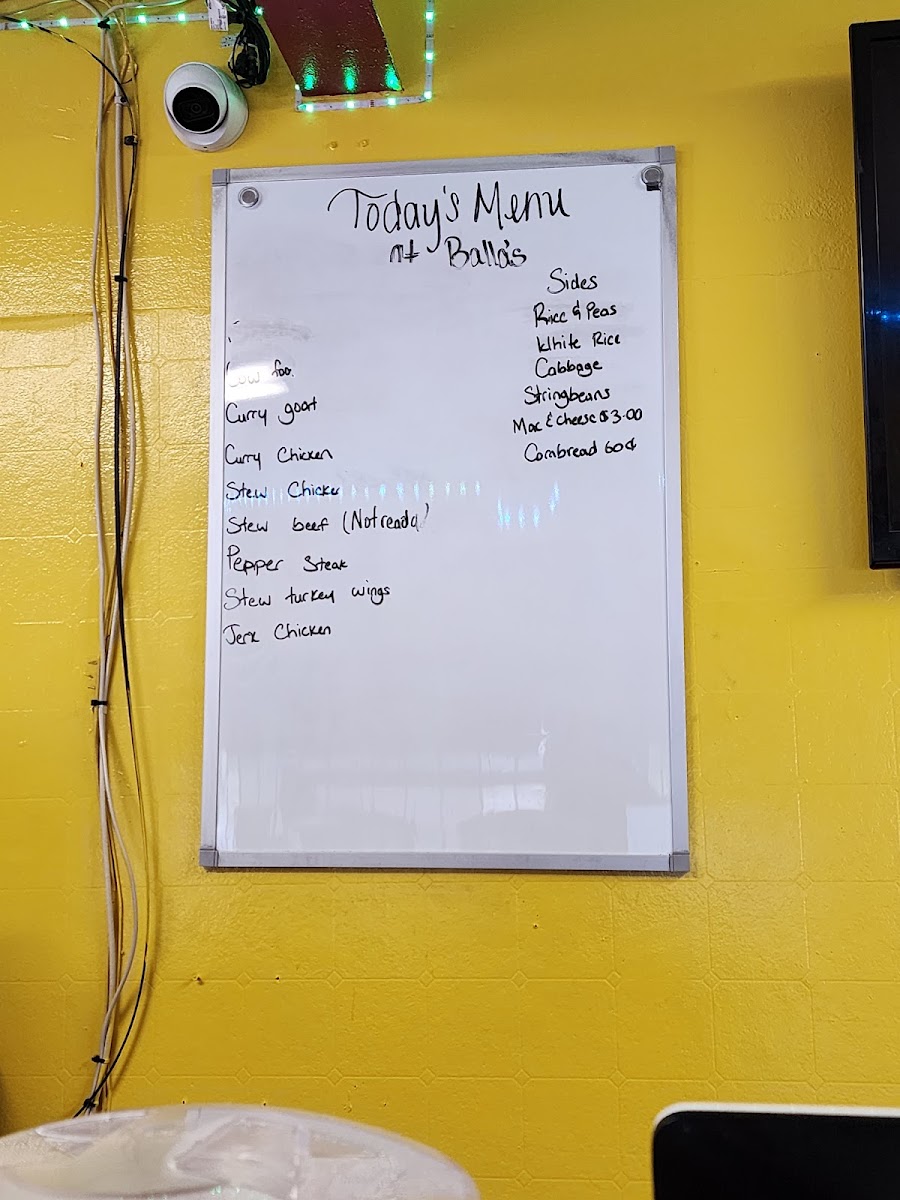 Today's Menu
At Balla's
Sides
Rice & Peas
White Rice
Cabbage
Stringbeans
Mac & Cheese $3.00
Cornbread 60¢
Cow foo
Curry goat
Curry Chicken
Stew Chicken
Stew beef (Not ready)
Pepper Steak
Stew turkey wings
Jerk Chicken